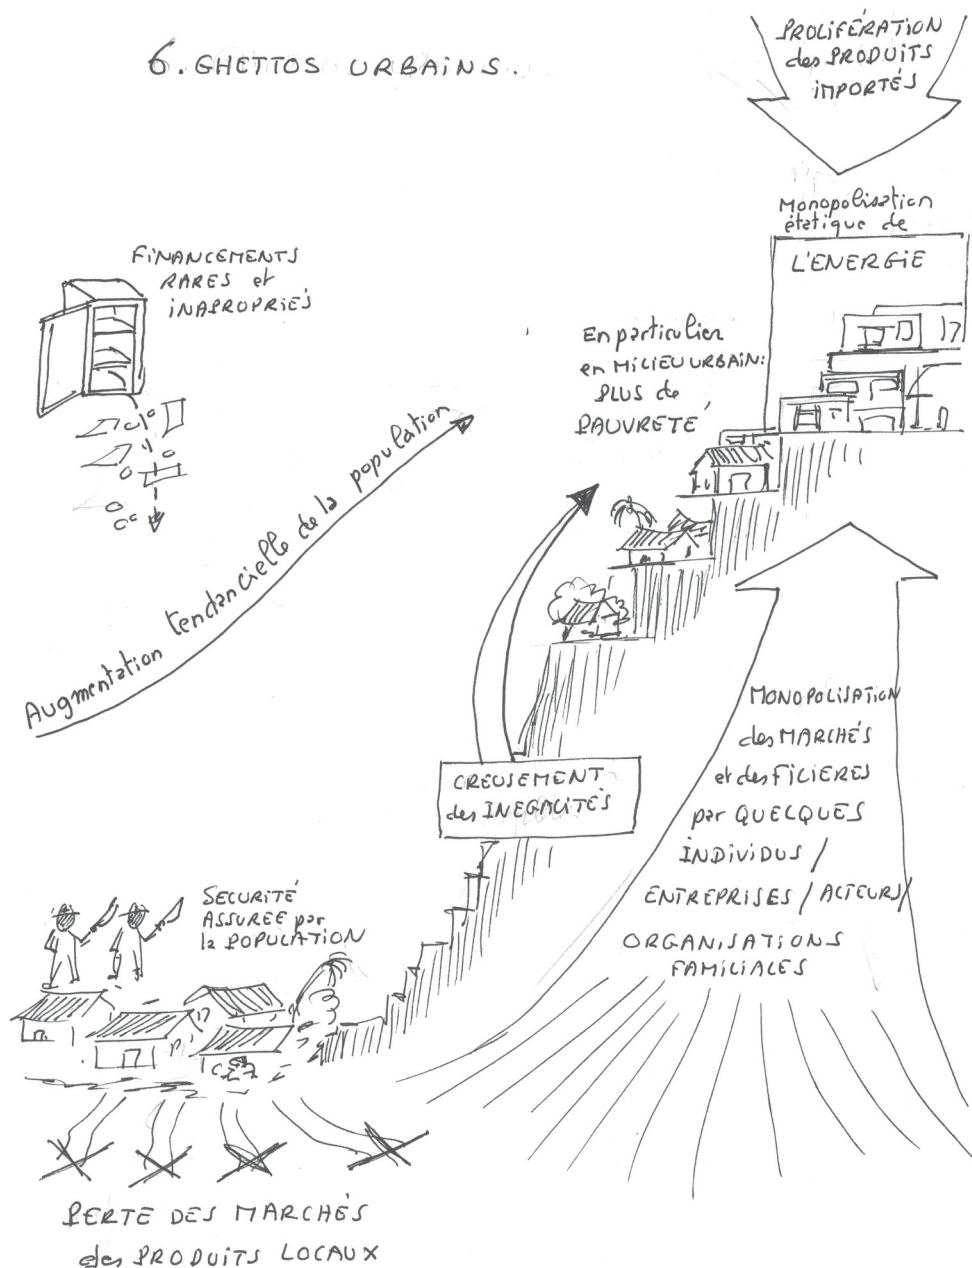 6. GHETTOS URBAINS.
PROLIFÉRATION
des PRODUITS
IMPORTÉS
Monopolisation
étatique de
L'ENERGIE
FINANCEMENTS
RARES et
INAPROPRIÉS
En particulier
en MILIEU URBAIN:
PLUS de
PAUVRETÉ
Augmentation tendancielle de la population
CREUSEMENT
des INEGALITÉS
MONOPOLISATION
des MARCHÉS
et des FILIERES
par QUELQUES
INDIVIDUS /
ENTREPRISES / ACTEURS /
ORGANISATIONS
FAMILIALES
SECURITÉ
ASSUREE par
la POPULATION
PERTE DES MARCHÉS
des PRODUITS LOCAUX